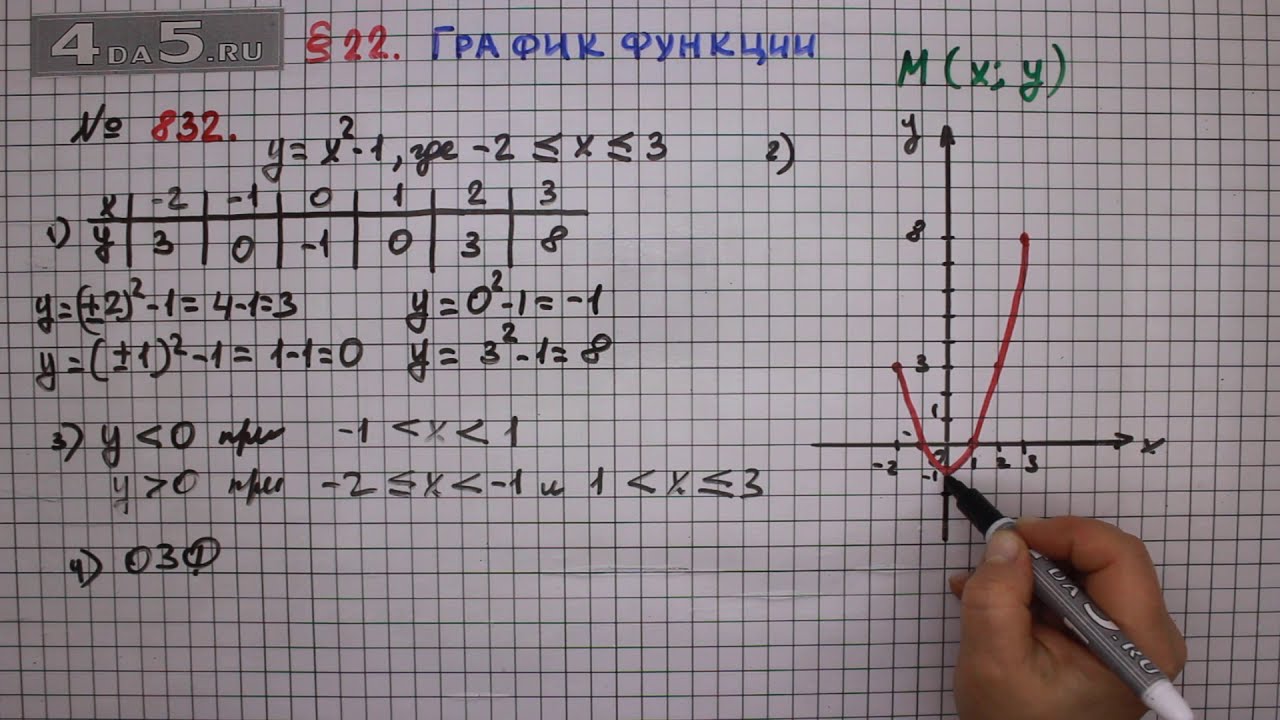 4DA5.RU § 22. ГРАФИК ФУНКЦИИ
M(x; y)
№ 832.
y = x² - 1, где -2 ≤ x ≤ 3
1)
x | -2 | -1 | 0 | 1 | 2 | 3
y | 3 | 0 | -1 | 0 | 3 | 8
y = (±2)² - 1 = 4 - 1 = 3 y = 0² - 1 = -1
y = (±1)² - 1 = 1 - 1 = 0 y = 3² - 1 = 8
3) y < 0 при -1 < x < 1
y > 0 при -2 ≤ x < -1 и 1 < x ≤ 3
4) ОЗФ
2)
y
8
3
1
-2 0 1 2 3 x
-1
4DA5.RU